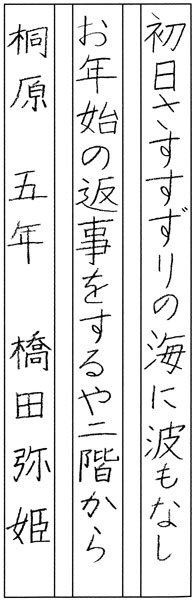 初日さすすずりの海に波もなし
お年始の返事をするや二階から
桐原 五年 橋田弥姫